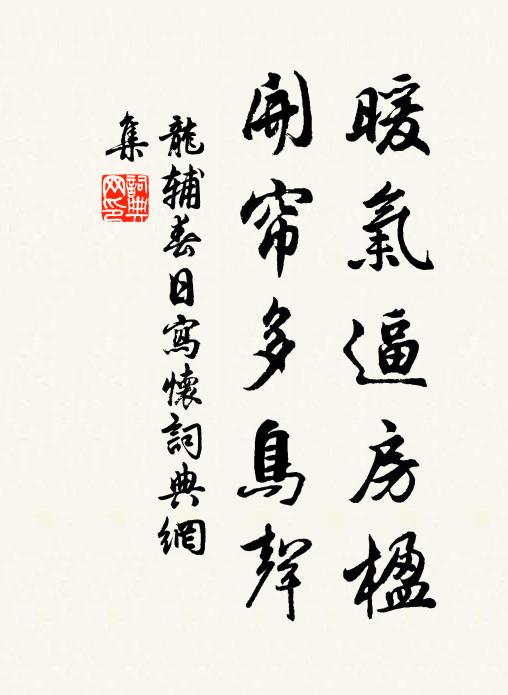 暖氣逼房楹
開帘多鳥聲
龍輔春日寫懷詞典網
集
詞典
网印